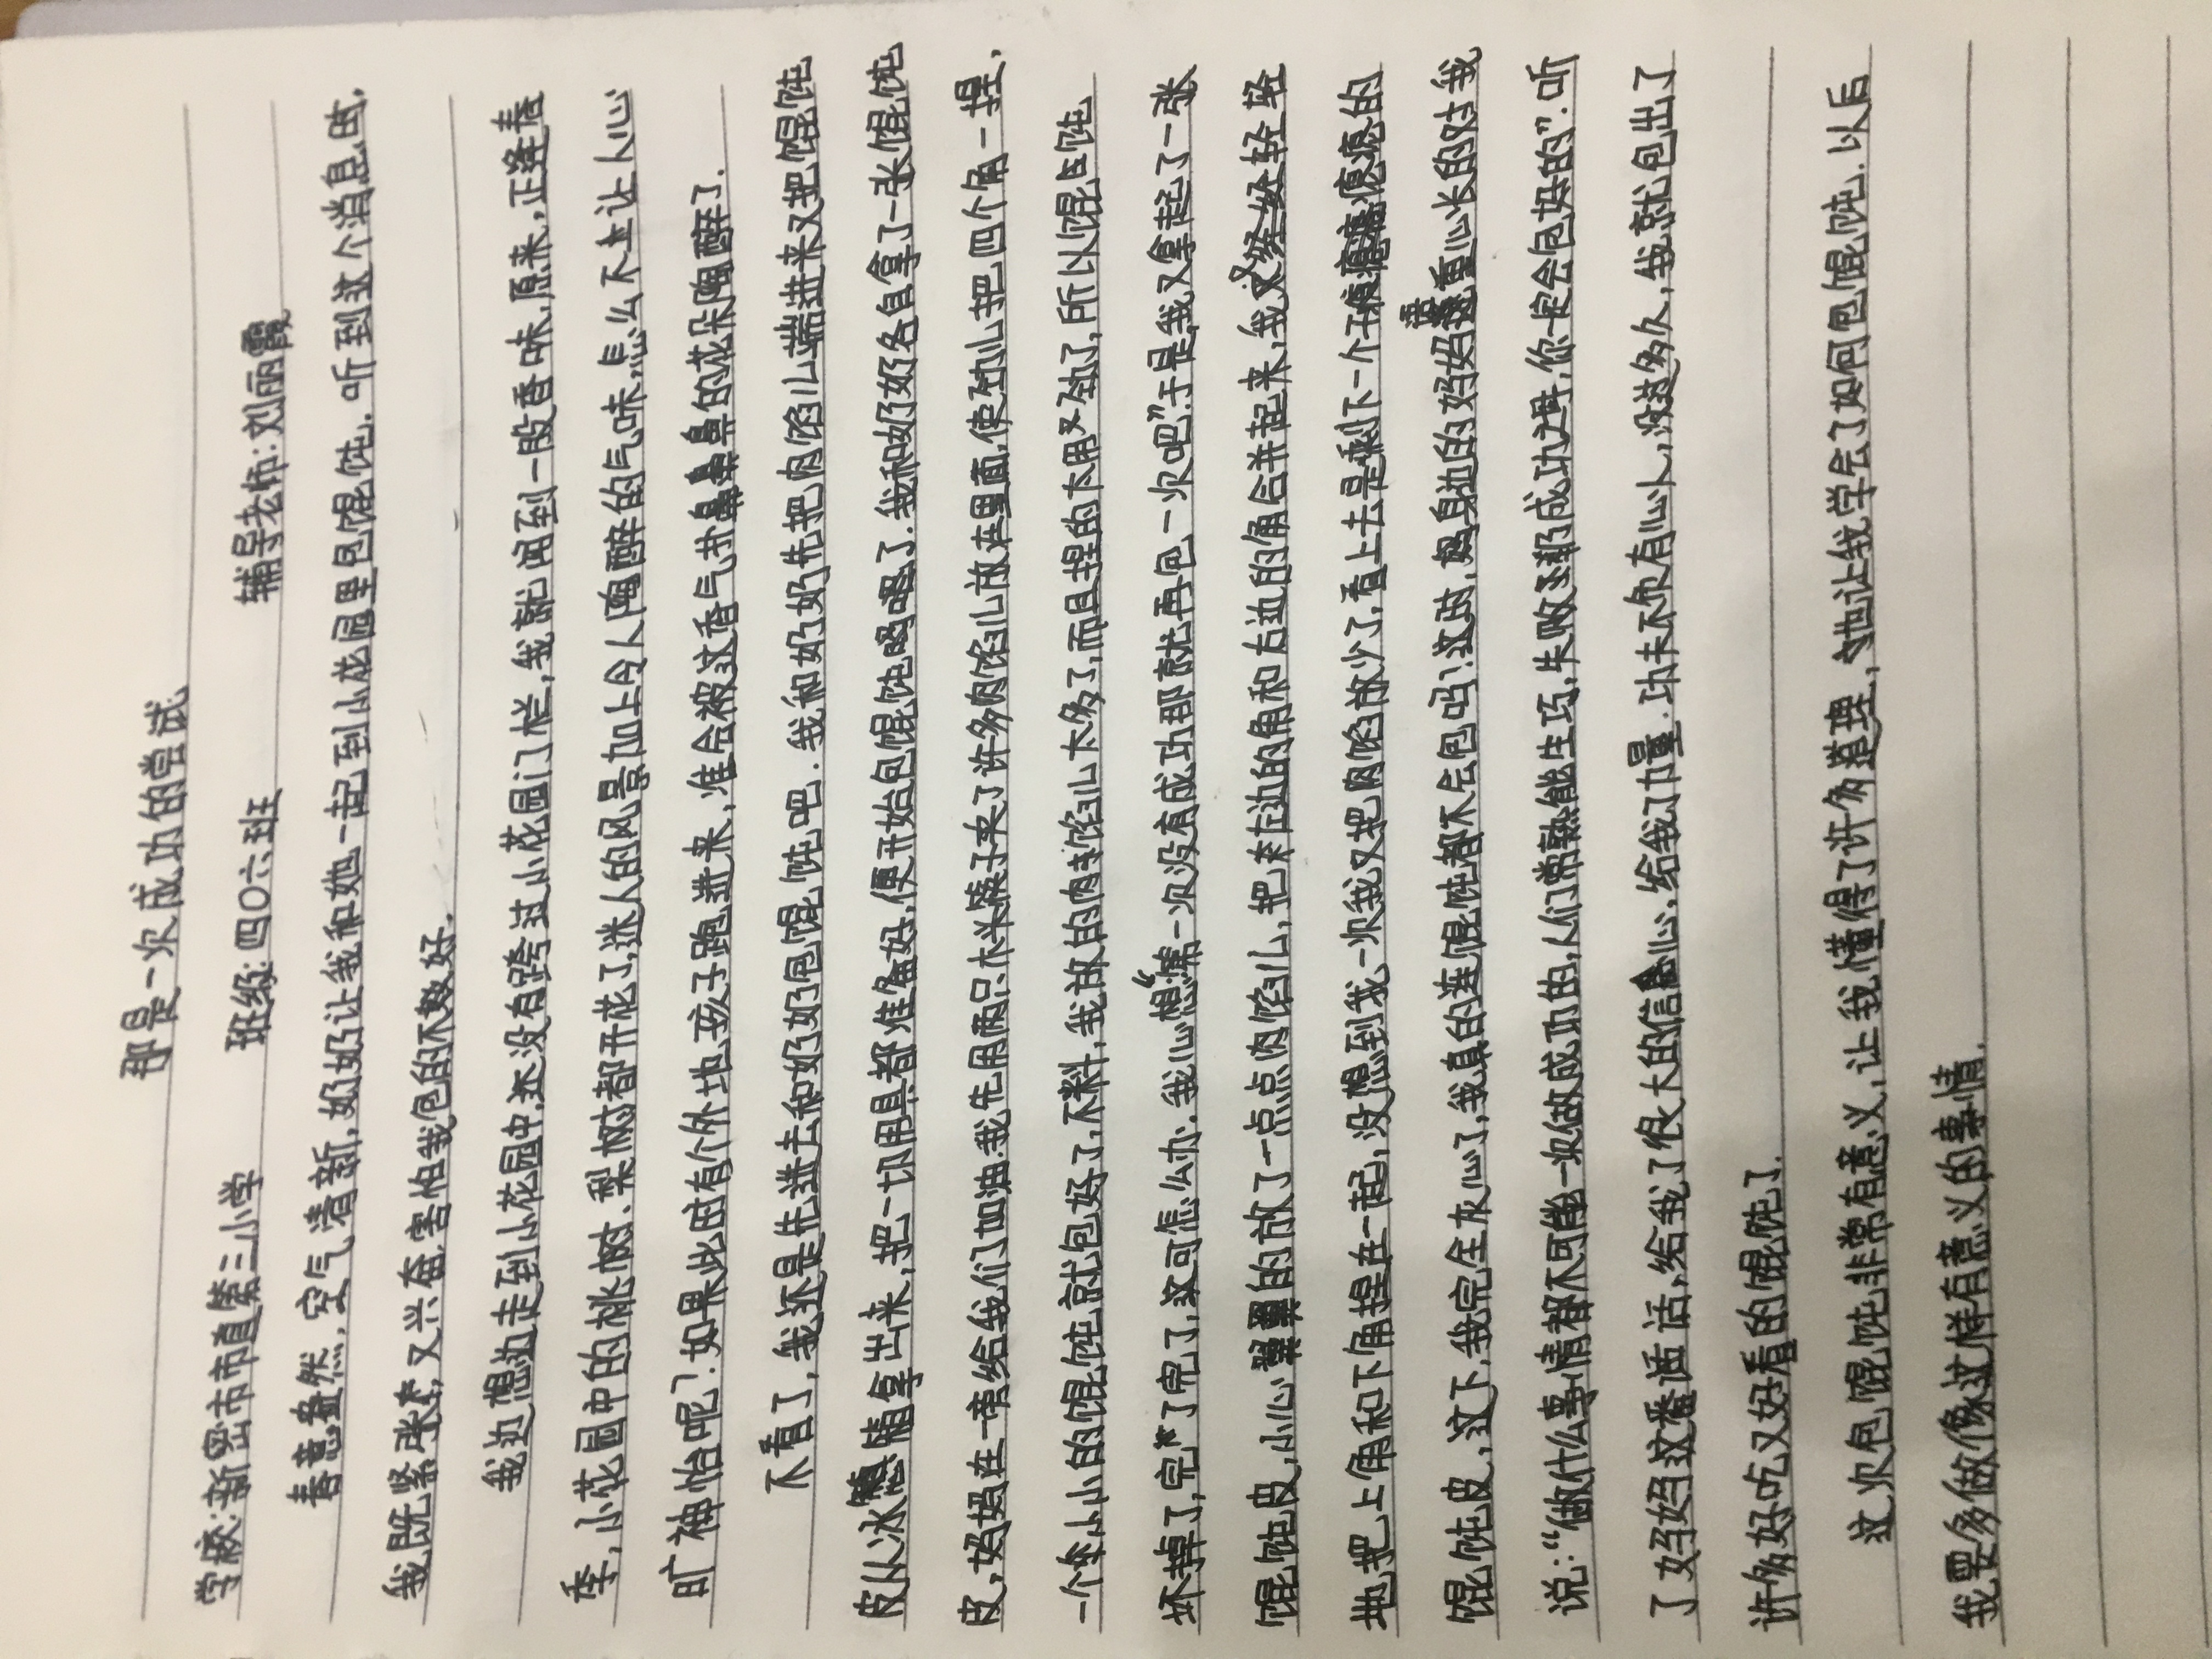 那是一次成功的尝试
学校:新密市市直第三小学 班级:四〇六班 辅导老师:刘丽霞
春意盎然,空气清新,奶奶让我和她一起到小花园里包馄饨.听到这个消息时,
我既紧张,又兴奋,害怕我包的不敷好.
我边想边走到小花园中,还没有跨过小花园门栏,我就闻到一股香味,原来,正逢春
季,小花园中的桃树、梨树都开花了,迷人的风景加上令人陶醉的气味,怎么不让人心
旷神怡呢?如果此时有个外地孩子跑进来,准会被这香气扑鼻的花朵陶醉了.
不看了,我还是先进去和奶奶包馄饨吧.我和奶奶先把肉馅儿端进来又把馄饨
皮从冰箱拿出来,把一切用具都准备好,便开始包馄饨喽了.我和奶奶各自拿了一张馄饨
皮,妈妈在一旁给我们加油.我先用两只木筷子夹了许多肉馅儿放在里面,使劲儿把四个角一捏,
一个小小的馄饨就包好了,不料,我放的肉馅儿太多了,而且捏的太用劲了,所以馄饨
坏掉了,完了完了,这可怎么办.我心想:“第一次没有成功那就再包一次吧”于是我又拿起了一张
馄饨皮,小心翼翼的放了一点点肉馅儿,把左边的角和右边的角合并起来,我又轻轻
地把上角和下角捏在一起,没想到我一次我又把肉馅放少了,看上去是剩下一个干瘪瘪的
馄饨皮,这下,我完全灰心了,我真的连馄饨都不会包吗!这时,身边的妈妈语重心长的对我
说:“做什么事情都不可能一次做成功的,人们常熟能生巧,失败乃成功之母,你一定会包好的”.听
了妈妈这番话,给我了很大的信心,给我了力量.功夫不负有心人,没过多久,我就包出了
许多好吃又好看的馄饨了.
这次包馄饨非常有意义,让我懂得了许多道理,也让我学会了如何包馄饨.以后
我要多做像这样有意义的事情.